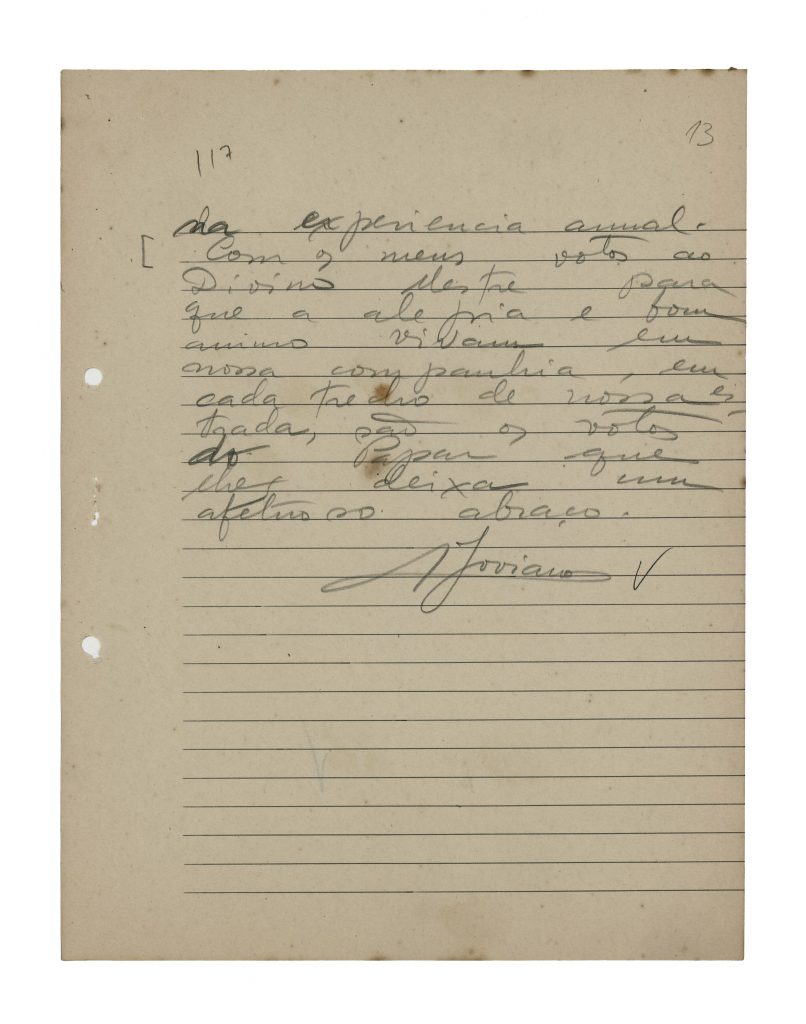 13
117
da experiencia annal.
[ Com os meus votos ao
Divino Mestre para
que a alegria e bom
animo vivam em
nossa companhia, em
cada trecho de nossa es
trada, são os votos
do Papai que
lhes deixa um
afetuoso abraço.
A Joviano V